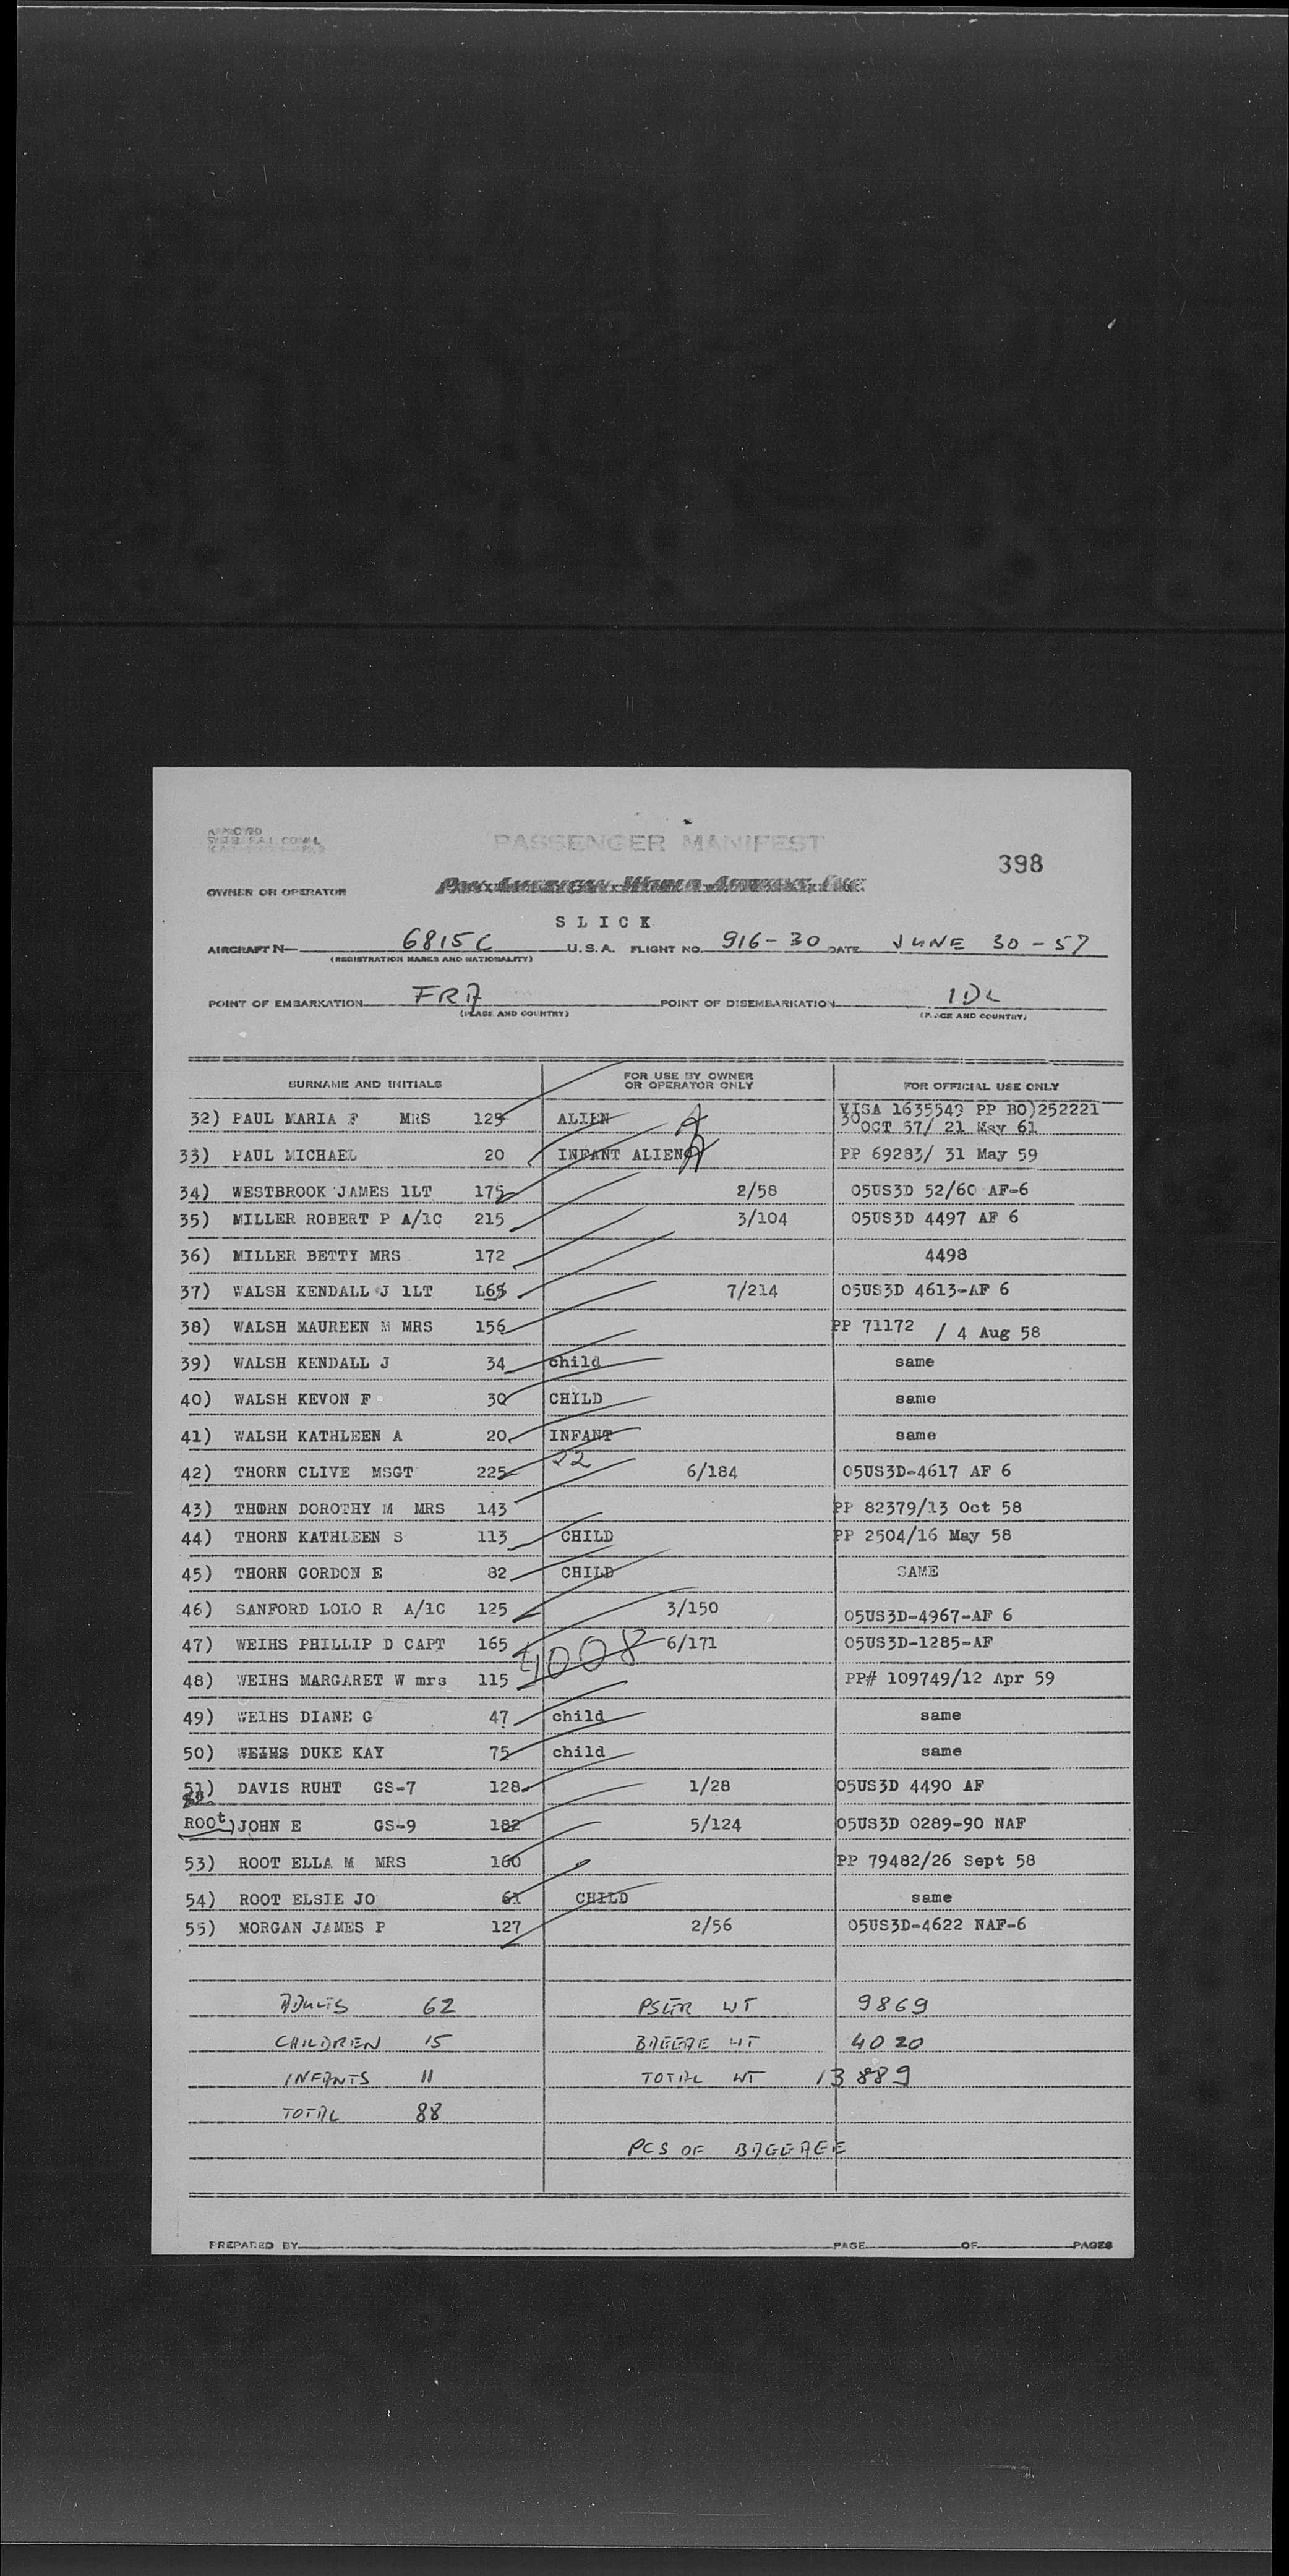 PASSENGER MANIFEST
398
OWNER OR OPERATOR PAN AMERICAN WORLD AIRWAYS, INC.
S L I C K
AIRCRAFT N— 6815C U.S.A. FLIGHT NO. 916-30 DATE JUNE 30-57
(REGISTRATION MARKS AND NATIONALITY)
POINT OF EMBARKATION FRA POINT OF DISEMBARKATION IDL
(PLACE AND COUNTRY) (PLACE AND COUNTRY)
SURNAME AND INITIALS FOR USE BY OWNER OR OPERATOR ONLY FOR OFFICIAL USE ONLY
32) PAUL MARIA F MRS 125 ALIEN VISA 1635549 PP BO)252221
30 OCT 57/ 21 May 61
33) PAUL MICHAEL 20 INFANT ALIEN PP 69283/ 31 May 59
34) WESTBROOK JAMES 1LT 175 2/58 05US3D 52/60 AF-6
35) MILLER ROBERT P A/1C 215 3/104 05US3D 4497 AF 6
36) MILLER BETTY MRS 172 4498
37) WALSH KENDALL J 1LT 165 7/214 05US3D 4613-AF 6
38) WALSH MAUREEN M MRS 156 PP 71172 / 4 Aug 58
39) WALSH KENDALL J 34 child same
40) WALSH KEVON F 30 CHILD same
41) WALSH KATHLEEN A 20 INFANT same
22
42) THORN CLIVE MSGT 225 6/184 05US3D-4617 AF 6
43) THORN DOROTHY M MRS 143 PP 82379/13 Oct 58
44) THORN KATHLEEN S 113 CHILD PP 2504/16 May 58
45) THORN GORDON E 82 CHILD SAME
46) SANFORD LOLO R A/1C 125 3/150 05US3D-4967-AF 6
47) WEIHS PHILLIP D CAPT 165 4008 6/171 05US3D-1285-AF
48) WEIHS MARGARET W mrs 115 PP# 109749/12 Apr 59
49) WEIHS DIANE G 47 child same
50) WEIHS DUKE KAY 75 child same
51) DAVIS RUHT GS-7 128 1/28 05US3D 4490 AF
ROOt) JOHN E GS-9 182 5/124 05US3D 0289-90 NAF
53) ROOT ELLA M MRS 160 PP 79482/26 Sept 58
54) ROOT ELSIE JO 61 CHILD same
55) MORGAN JAMES P 127 2/56 05US3D-4622 NAF-6
ADULTS 62 PSGR WT 9869
CHILDREN 15 BAGGAGE WT 4020
INFANTS 11 TOTAL WT 13889
TOTAL 88
PCS OF BAGGAGE
PREPARED BY PAGE OF PAGES